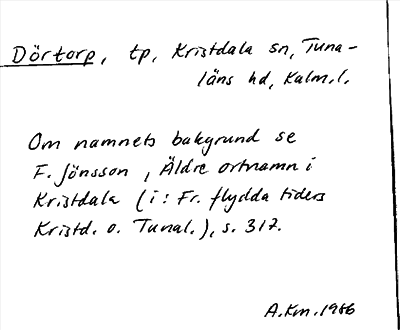 Dörtorp, tp, Kristdala sn, Tuna-
läns hd, Kalm.l.
Om namnets bakgrund se
F. Jönsson, Äldre ortnamn i
Kristdala (i: Fr. flydda tiders
Kristd. o. Tunal.), s. 317.
A.Km.1966